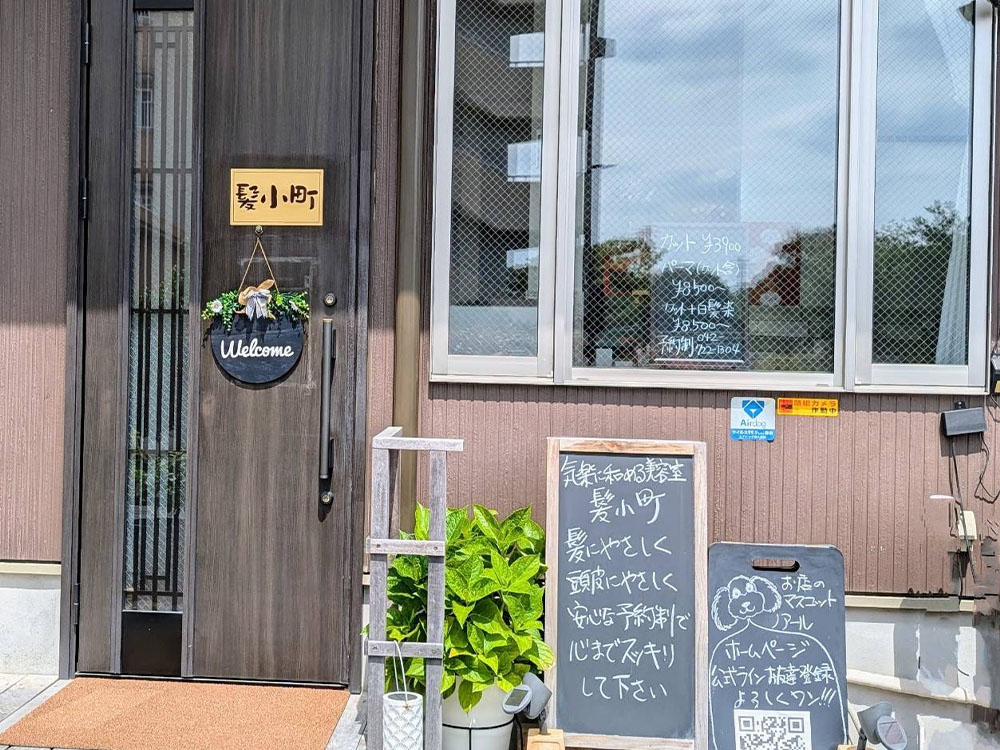 髪小町
Welcome
カット ¥3900
パーマ(カット含)
¥8500〜
カット+白髪染
¥8500〜
予約制 042
722-1304
Airdog
防犯カメラ
作動中
気楽に和める美容室
髪小町
髪にやさしく
頭皮にやさしく
安心な予約制で
心までスッキリ
して下さい
お店の
マスコット
アール
ホームページ
公式ライン友達登録
よろしくワン!!!